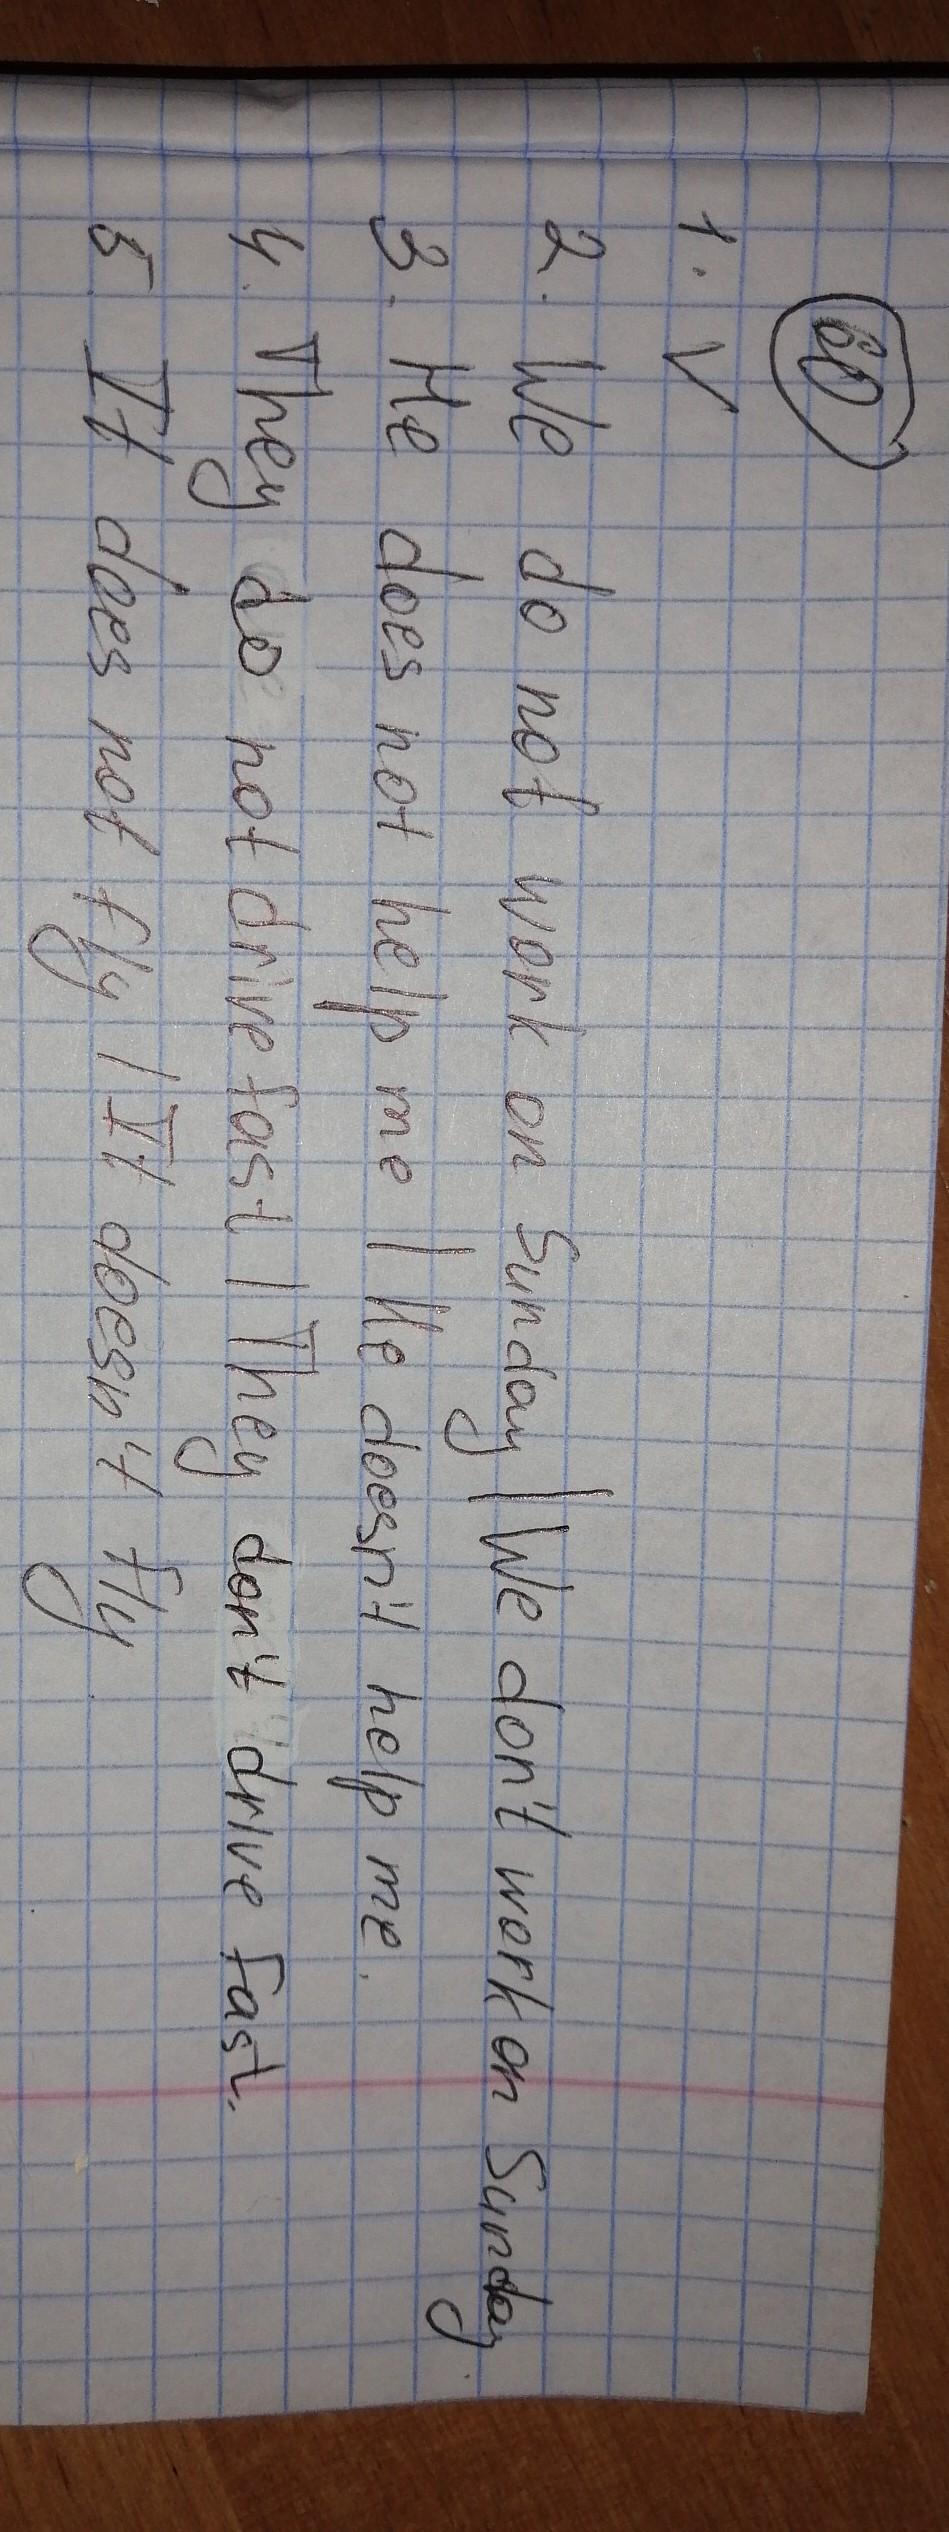 60
1. V
2. We do not work on Sunday | We don't work on Sunday.
3. He does not help me | He doesn't help me.
4. They do not drive fast | They don't drive fast.
5. It does not fly | It doesn't fly